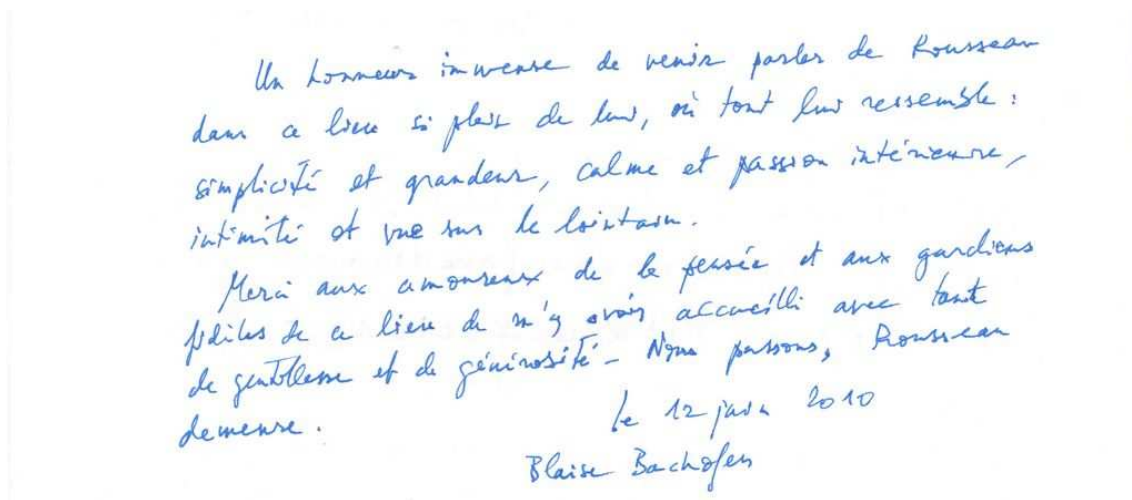 Un honneur immense de venir parler de Rousseau
dans ce lieu si plein de lui, où tout lui ressemble :
simplicité et grandeur, calme et passion intérieure,
intimité et vue sur le lointain.
Merci aux amoureux de la pensée et aux gardiens
fidèles de ce lieu de m'y avoir accueilli avec tant
de gentillesse et de générosité – Nous passons, Rousseau
demeure.
le 12 juin 2010
Blaise Bachofen